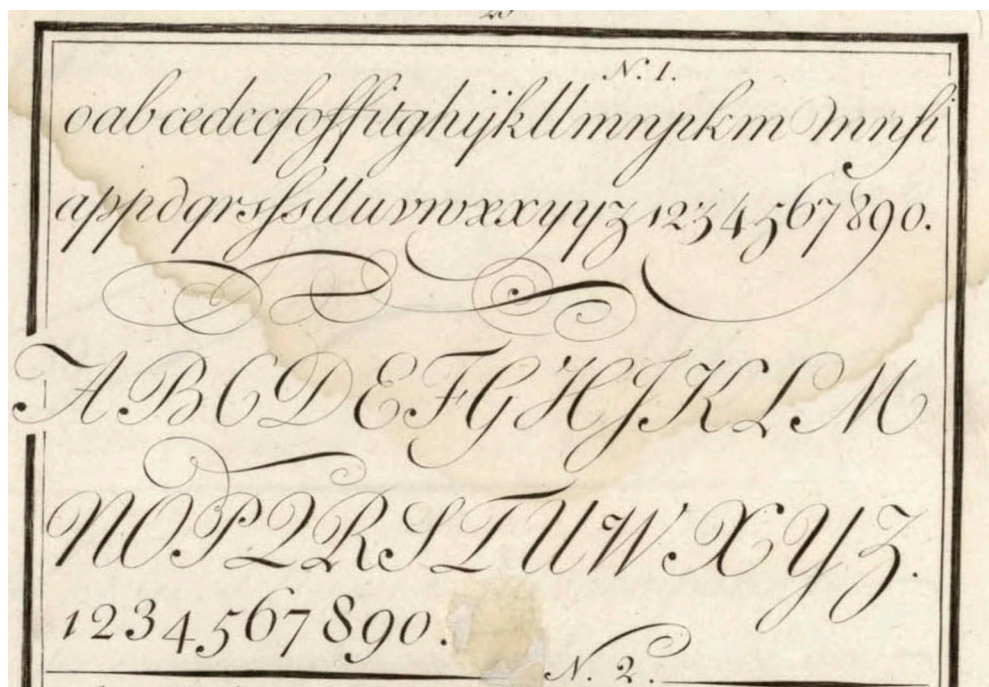 N. 1.
oabcedecfoffitghijkllmnpkm mnfi
appdqrsſslluvwxxyyz 1234567890.
ABCDEFGHJKLM
NOPQRSTUWXYZ.
1234567890.
N. 2.